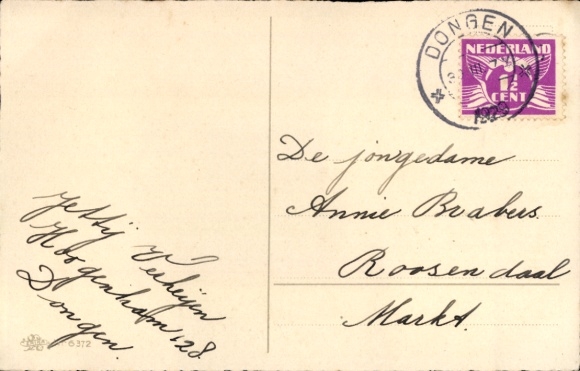 DONGEN
1929
NEDERLAND
1½
CENT
De jongedame
Annie Brabers.
Roosendaal
Markt.
Jettij Verheijen
Hoogenham 128
Dongen.
6372